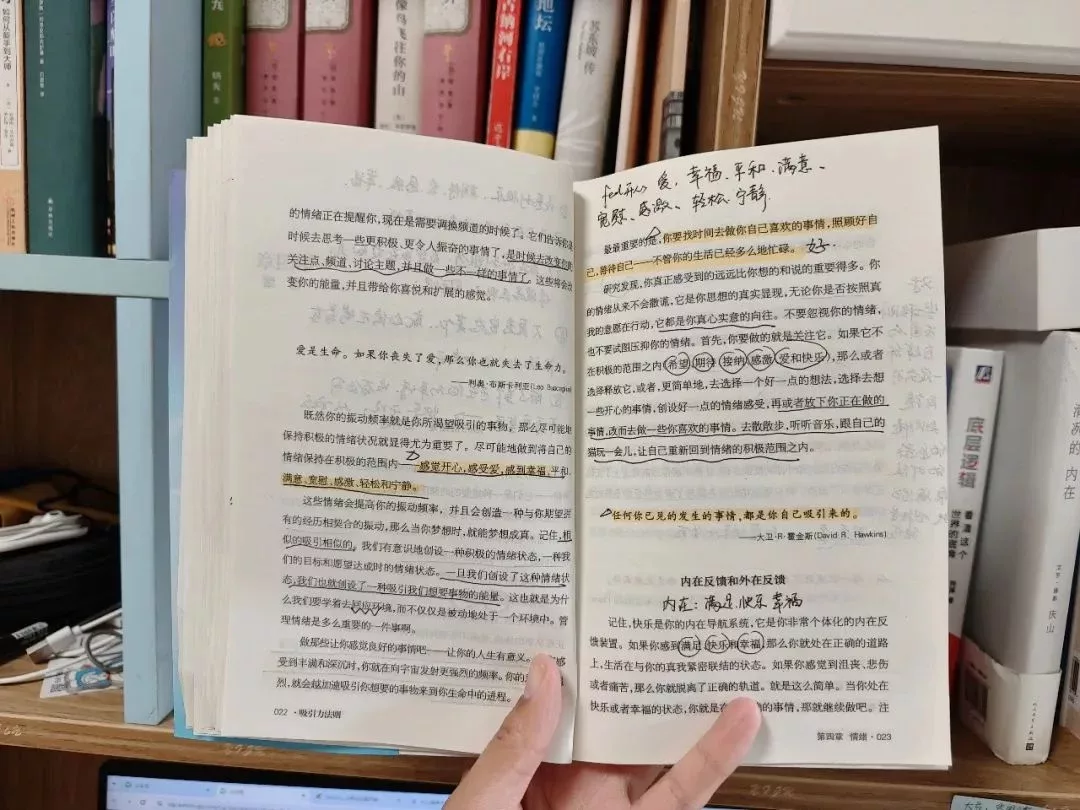 如何从新手到大师
像鸟飞往你的山
古纳河右岸
地坛
苏东坡传
的情绪正在提醒你,现在是需要调换频道的时候了。它们告诉你
时候去思考一些更积极、更令人振奋的事情了,是时候去改变你的
关注点,频道,讨论主题,并且做一些不一样的事情了,这些将会改
变你的能量,并且带给你喜悦和扩展的感觉。
爱是生命。如果你丧失了爱,那么你也就失去了生命力。
——利奥·布斯卡利亚(Leo Buscaglia
既然你的振动频率就是你所渴望吸引的事物,那么尽可能地
保持积极的情绪状况就显得尤为重要了。尽可能地做到将自己的
情绪保持在积极的范围内——感觉开心,感受爱,感到幸福,平和、
满意、宽慰、感激、轻松和宁静。
这些情绪会提高你的振动频率,并且会创造一种与你期望
有的经历相契合的振动,那么当你梦想时,就能梦想成真。记住,相
似的吸引相似的。我们有意识地创设一种积极的情绪状态,一种我
们的目标和愿望达成时的情绪状态。一旦我们创设了这种情绪状
态,我们也就创设了一种吸引我们想要事物的能量。这也就是为什
么我们要学着去回应环境,而不仅仅是被动地处于一个环境中。管
理情绪是多么重要的一件事啊。
做那些让你感觉良好的事情吧——让你的人生有意义。
受到丰满和深沉时,你就在向宇宙发射更强烈的频率。你的
烈,就会越加速吸引你想要的事物来到你生命中的进程。
022 · 吸引力法则
feel开心 爱、幸福、平和、满意、
宽慰、感激、轻松、宁静
最最重要的是,你要找时间去做你自己喜欢的事情,照顾好自
己,善待自己——不管你的生活已经多么地忙碌。
研究发现,你真正感受到的远远比你想的和说的重要得多。你
的情绪从来不会撒谎,它是你思想的真实显现,无论你是否按照真
我的意愿在行动,它都是你真心实意的向往。不要忽视你的情绪,
也不要试图压抑你的情绪。首先,你要做的就是关注它。如果它不
在积极的范围之内(希望、期待、接纳、感激、爱和快乐),那么或者
选择释放它,或者,更简单地,去选择一个好一点的想法,选择去想
一些开心的事情,创设好一点的情绪感受,再或者放下你正在做的
事情,改而去做一些你喜欢的事情。去散散步,听听音乐,跟自己的
猫玩一会儿,让自己重新回到情绪的积极范围之内。
任何你已见的发生的事情,都是你自己吸引来的。
——大卫·R·霍金斯(David R. Hawkins)
内在反馈和外在反馈
内在:满足、快乐、幸福
记住,快乐是你的内在导航系统,它是你非常个体化的内在反
馈装置。如果你感到满足、快乐和幸福,那么你就处在正确的道路
上,生活在与你的真我紧密联结的状态。如果你感觉到沮丧、悲伤
或者痛苦,那么你就脱离了正确的轨道。就是这么简单。当你处在
快乐或者幸福的状态,你就是在 的事情,那就继续做吧。注
第四章 情绪 · 023
底层逻辑
看清这个
世界的底牌